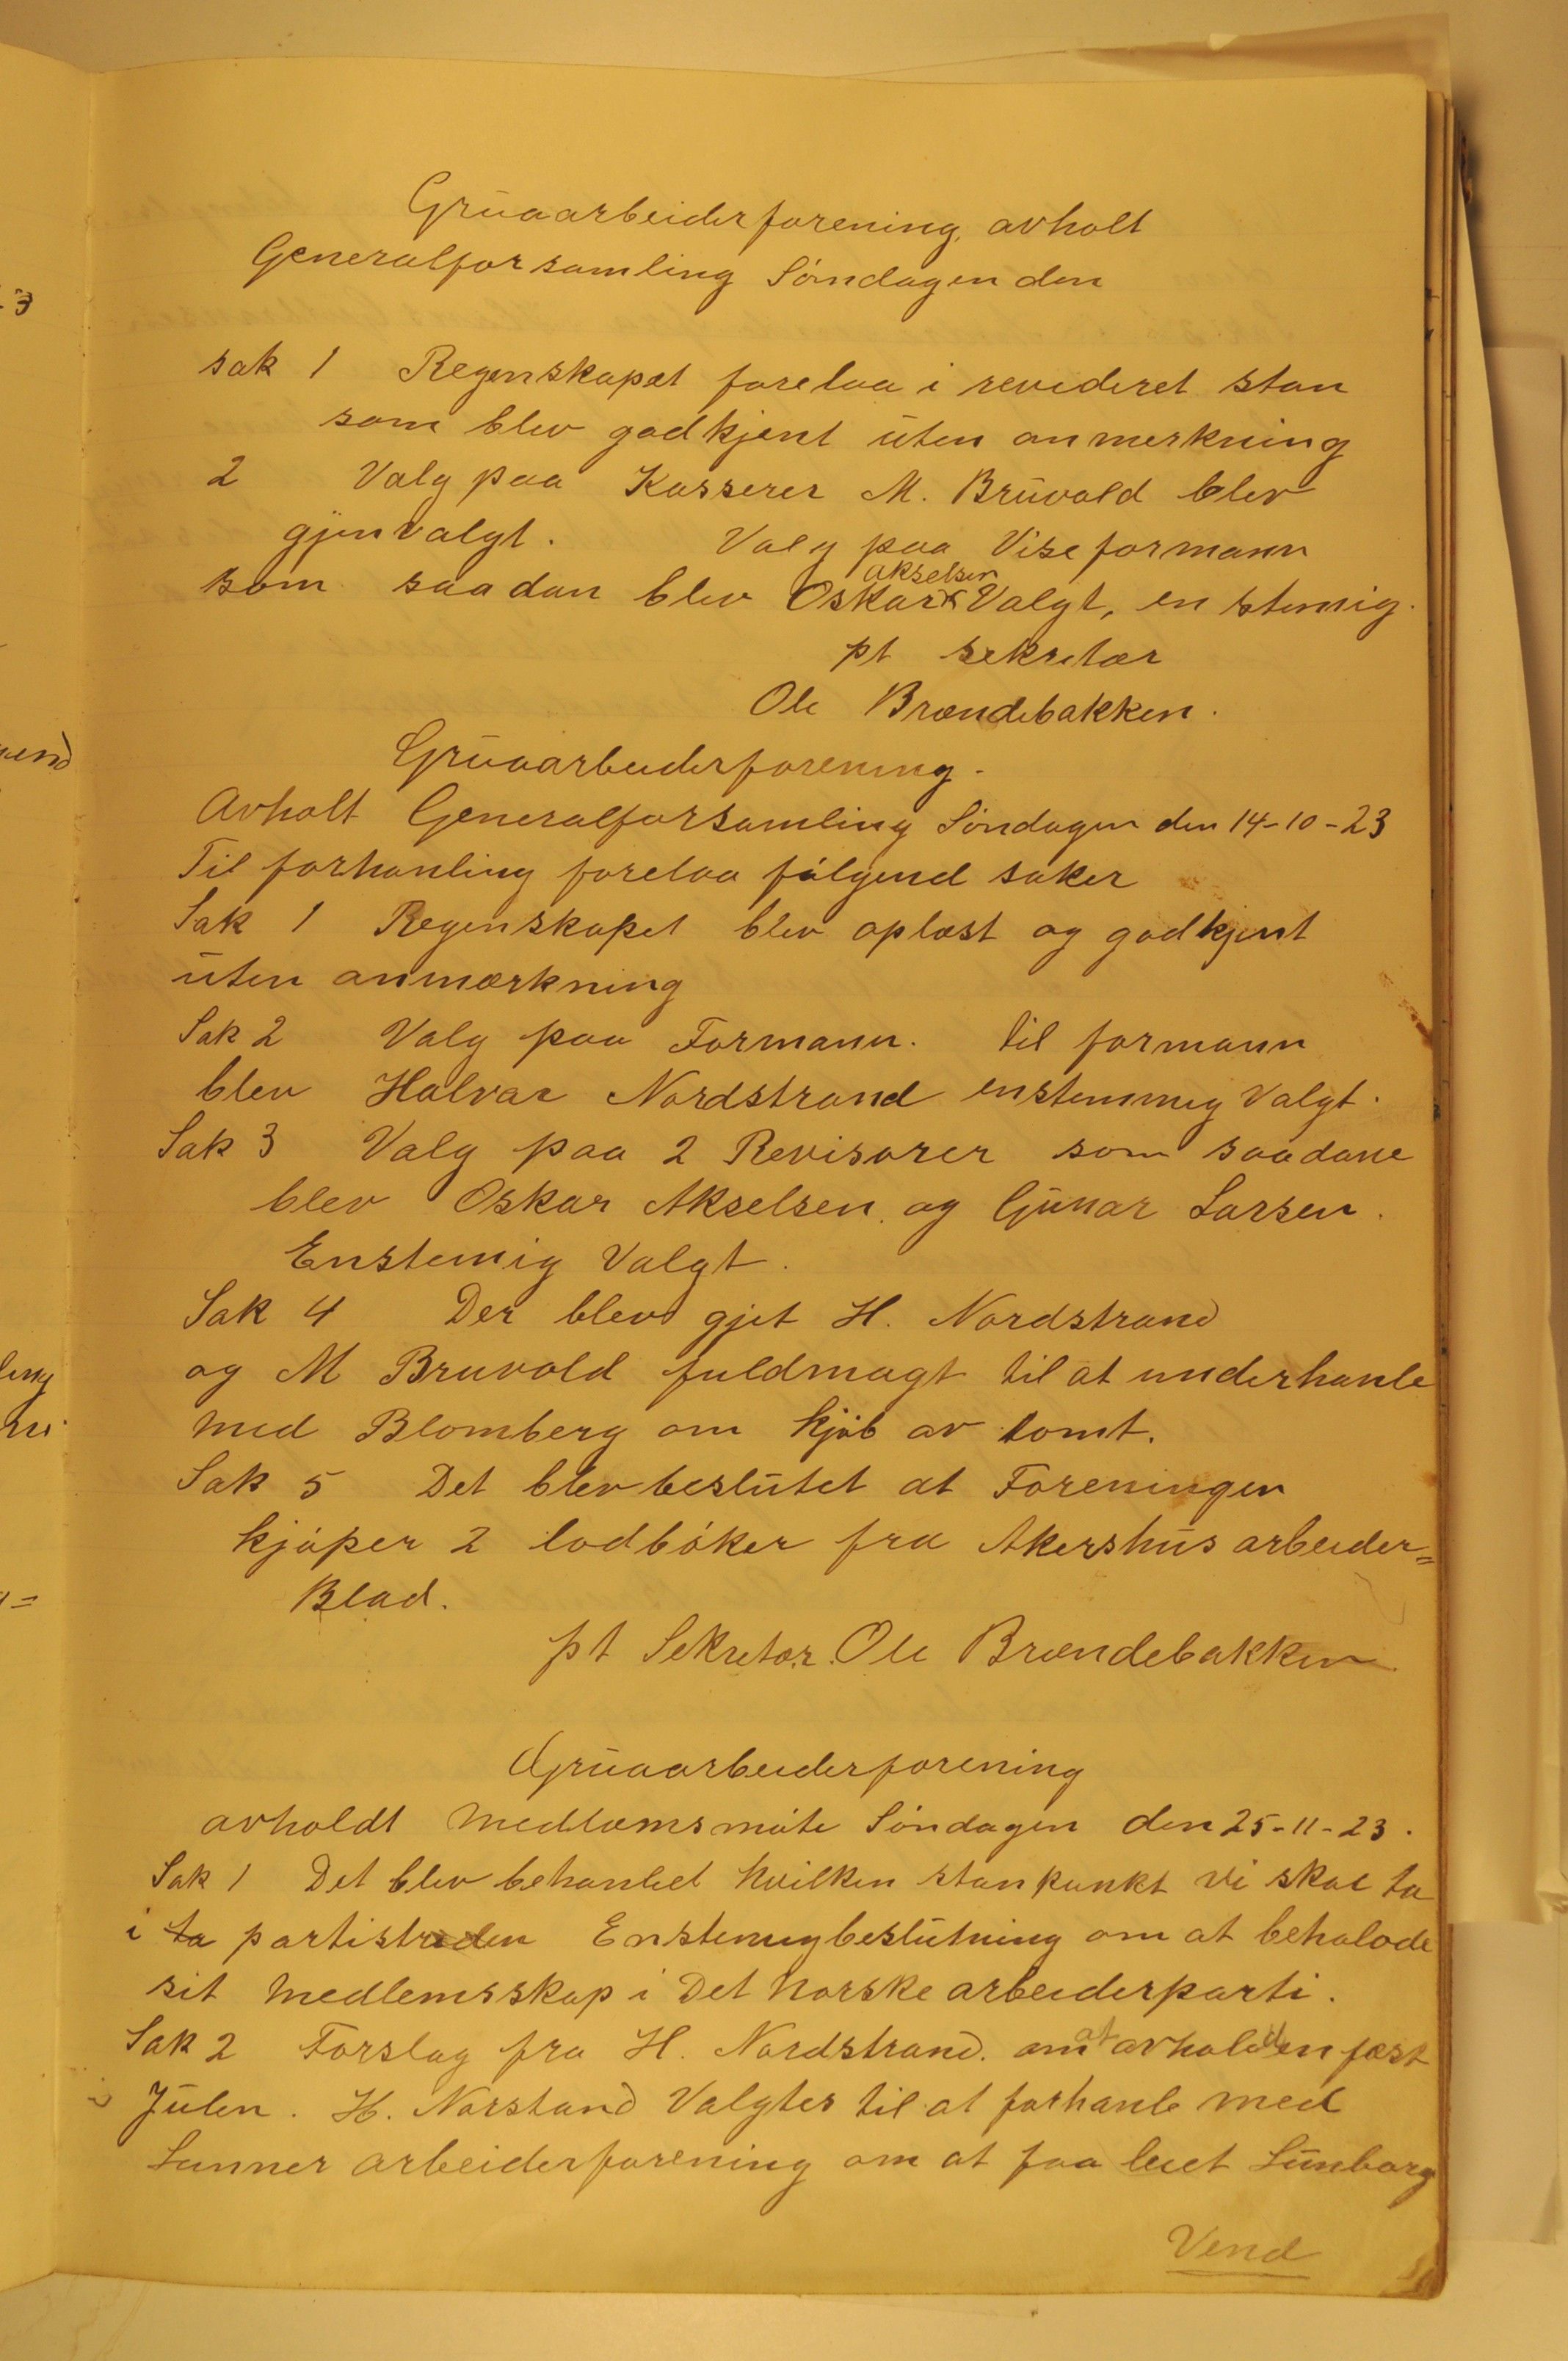 Gruaarbeiderforening avholt
Generalforsamling Søndagen den
sak 1 Regenskapet forelaa i revideret stan
som blev godkjent uten anmerkning
2 Valg paa Kasserer M. Bruvold blev
gjenvalgt. Valg paa Viseformann
akselsen
som saadan blev Oskar x Valgt, en stemig.
pt sekretær
Ole Brændebakken.
Gruaarbeiderforening.
Avholt Generalforsamling Søndagen den 14-10-23
Til forhanling forelaa følgend saker
Sak 1 Regenskapet blev oplæst og godkjent
uten anmærkning
Sak 2 Valg paa Formann. til formann
blev Halvar Nordstrand enstemmig Valgt.
Sak 3 Valg paa 2 Revisorer som saadane
blev Oskar Akselsen og Gunar Larsen.
Enstemig Valgt.
Sak 4 Der blev gjet H. Nordstrand
og M Bruvold fuldmagt til at underhanle
med Blomberg om kjøb av tomt.
Sak 5 Det blev beslutet at Foreningen
kjøper 2 lodbøker fra Akershus arbeider=
Blad.
pt Sekretær. Ole Brændebakken
Gruaarbeiderforening
avholdt medlæmsmøte Søndagen den 25-11-23.
Sak 1 Det blev behanlet hvilken stanpunkt vi skal ta
i ta partistriden Enstemig beslutning om at beholode
sit medlemsskap i Det Norske arbeiderparti.
Sak 2 Forslag fra H. Nordstrand. om at avholde en fæst
i Julen. H. Norstand Valgtes til at forhanle med
Lunner arbeiderforening om at faa leiet Lunborg
Vend